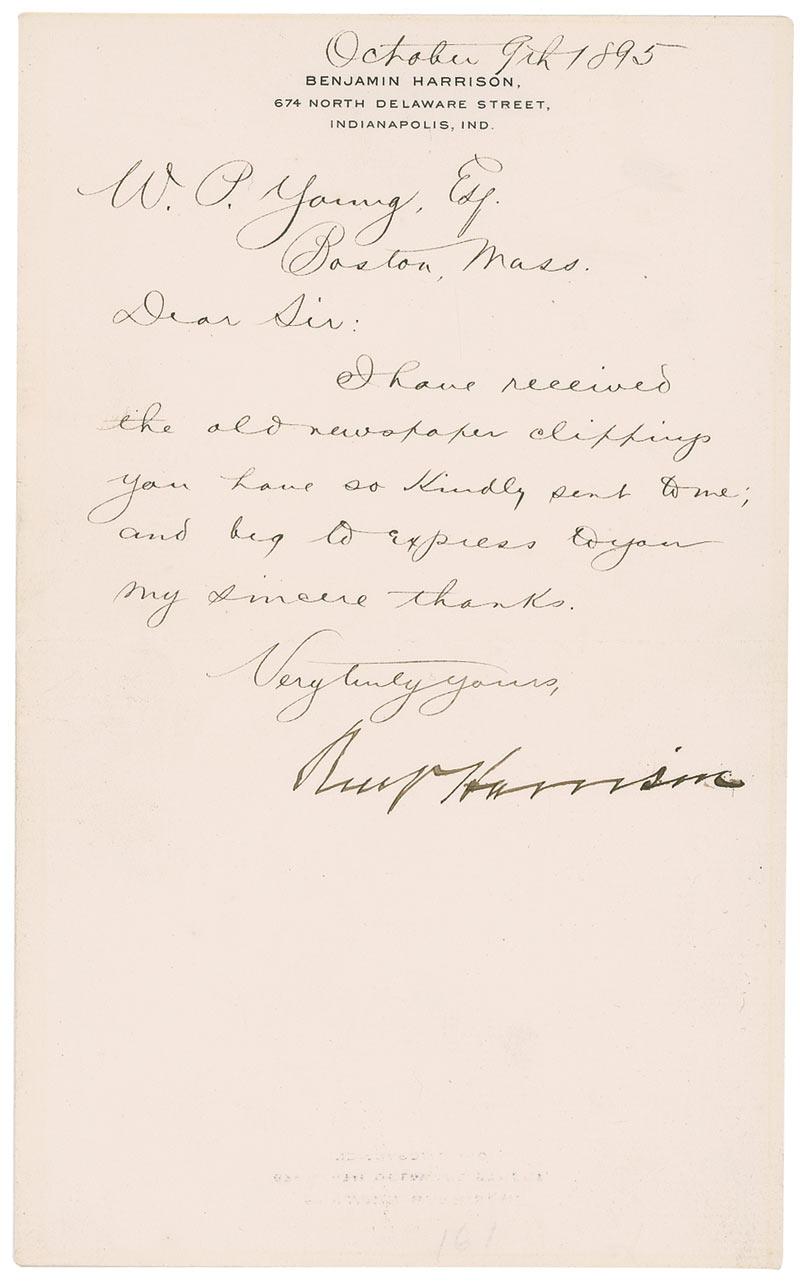 October 9th 1895
BENJAMIN HARRISON,
674 NORTH DELAWARE STREET,
INDIANAPOLIS, IND.
W. P. Young, Esq.
Boston, Mass.
Dear Sir:
I have received
the old newspaper clippings
you have so kindly sent to me;
and beg to express to you
my sincere thanks.
Very truly yours,
Benj Harrison
161